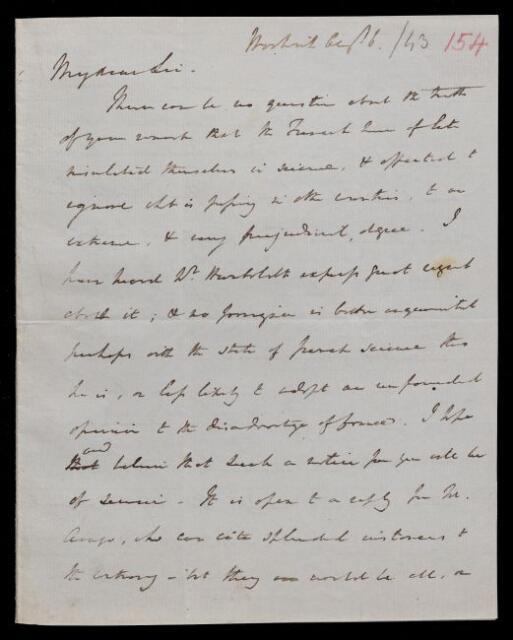 Woolwich Sept 6. /43 154
My dear Sir.
There can be no question about the truth
of your remark that the French have of late
insulated themselves in science, & affected to
ignore what is passing in other countries, to an
extreme, & very prejudicial, degree. I
have heard Mr. Humboldt express great regret
about it; & no foreigner is better acquainted
perhaps with the state of French science than
he is, or less likely to adopt an unfounded
opinion to the disadvantage of France. I hope
and
that believe that such a notice from you will be
of service. It is open to a reply from M.
Arago, who can cite splendid instances to
the contrary - but they would be all, or